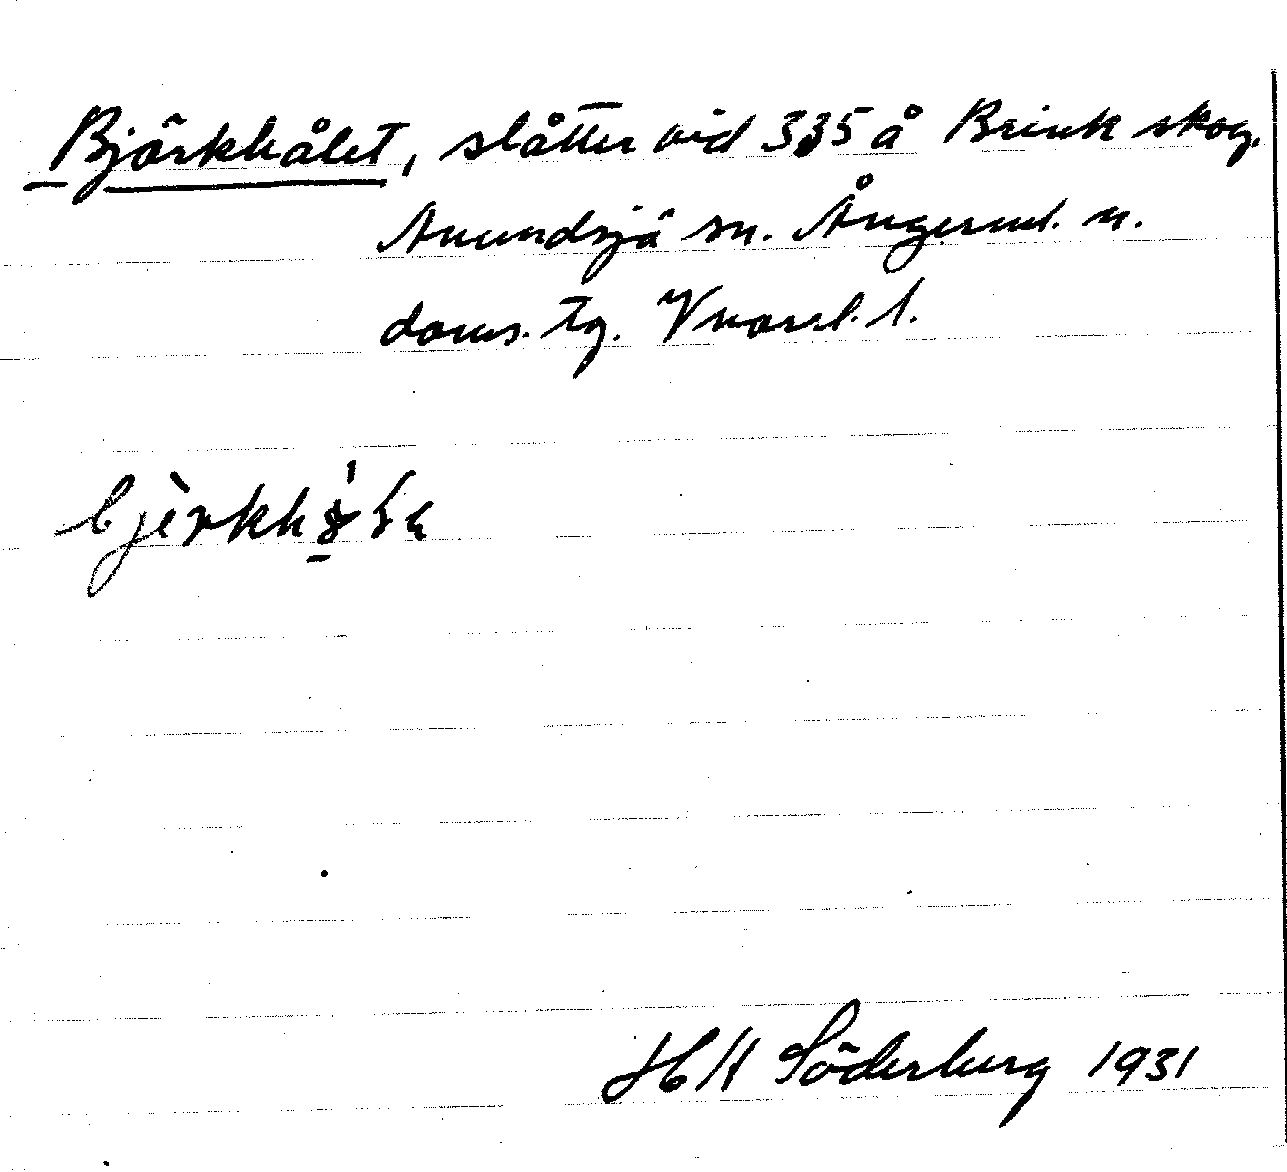 Björkhålet, slåtter vid 335 å Brink skog,
Anundsjö sn. Ångerml. n.
doms. tg. Vnorrl. l.
H W Söderberg 1931